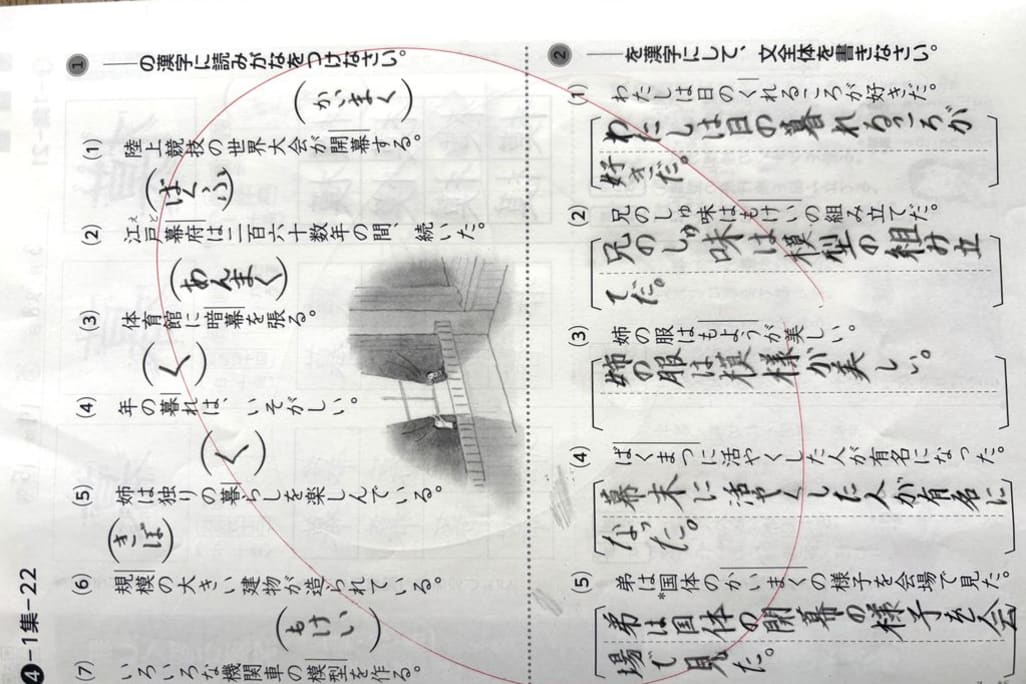 ④-1集-22
① ──の漢字に読みがなをつけなさい。
(1) 陸上競技の世界大会が開幕する。
(かいまく)
(2) 江戸幕府は二百六十数年の間、続いた。
えど
(ばくふ)
(3) 体育館に暗幕を張る。
(あんまく)
(4) 年の暮れは、いそがしい。
(く)
(5) 姉は独りの暮らしを楽しんでいる。
(く)
(6) 規模の大きい建物が造られている。
(きぼ)
(7) いろいろな機関車の模型を作る。
(もけい)
② ──を漢字にして、文全体を書きなさい。
(1) わたしは日のくれるころが好きだ。
わたしは日の暮れるころが
好きだ。
(2) 兄のしゅ味はもけいの組み立てだ。
兄のしゅ味は模型の組み立
てだ。
(3) 姉の服はもようが美しい。
姉の服は模様が美しい。
(4) ばくまつに活やくした人が有名になった。
幕末に活やくした人が有名に
なった。
(5) 弟は*国体のかいまくの様子を会場で見た。
弟は国体の開幕の様子を会
場で見た。